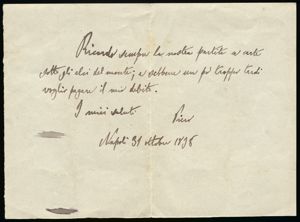 Ricordo sempre la nostra partita a carte
sotto gli elci del monte; e sebbene un po' troppo tardi
voglio pagare il mio debito.
I miei saluti
Piero
Napoli 31 ottobre 1896